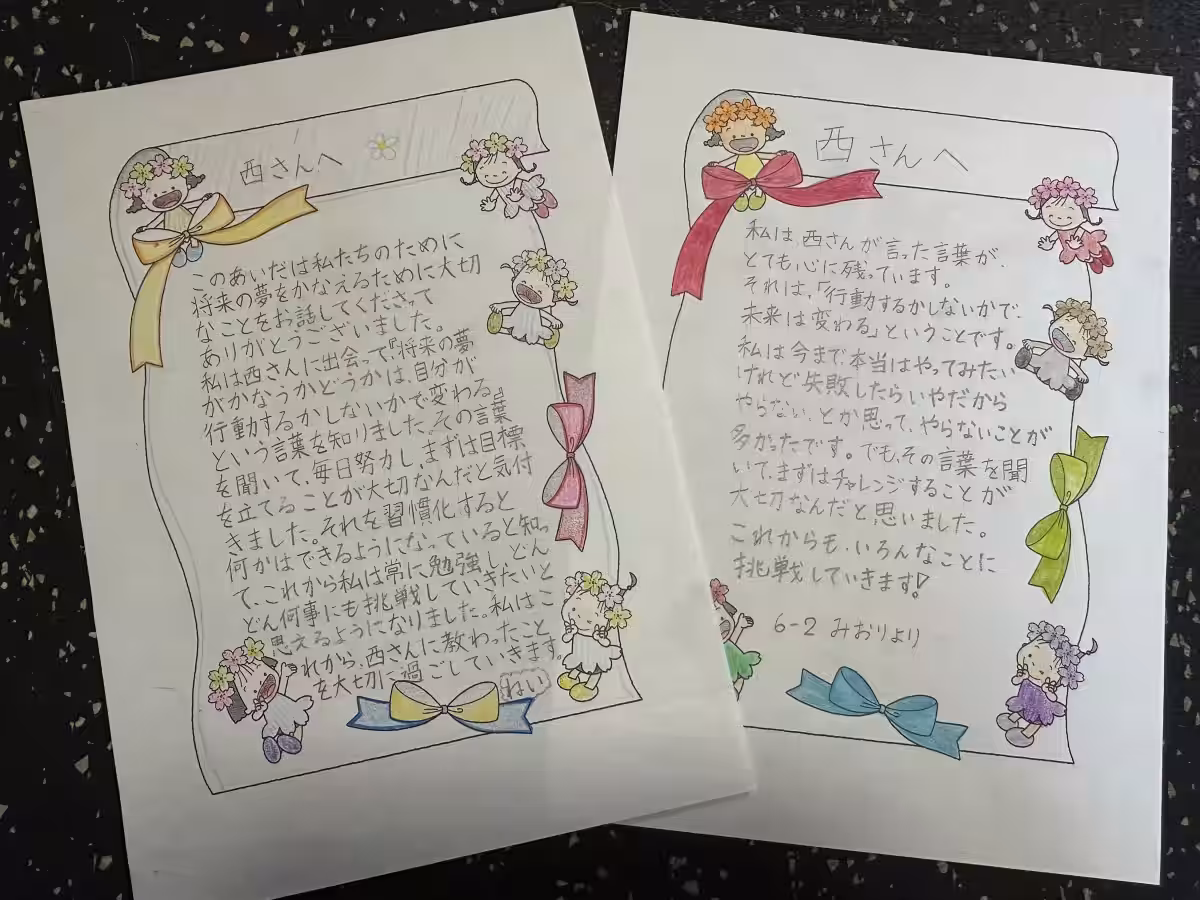 西さんへ
このあいだは私たちのために
将来の夢をかなえるために大切
なことをお話してくださって
ありがとうございました。
私は西さんに出会って『将来の夢
がかなうかどうかは、自分が
行動するかしないかで変わる』
という言葉を知りました。その言葉
を聞いて、毎日努力し、まずは目標
を立てることが大切なんだと気付
きました。それを習慣化すると
何かはできるようになっていると知っ
て、これから私は常に勉強し、どん
どん何事にも挑戦していきたいと
思えるようになりました。私はこ
れから、西さんに教わったこと
を大切に過ごしていきます。
ねい
西さんへ
私は、西さんが言った言葉が、
とても心に残っています。
それは、「行動するかしないかで、
未来は変わる」ということです。
私は今まで、本当はやってみたい
けれど失敗したらいやだから
やらない、とか思って、やらないことが
多かったです。でも、その言葉を聞
いて、まずはチャレンジすることが
大切なんだと思いました。
これからも、いろんなことに
挑戦していきます!
6-2 みおりより